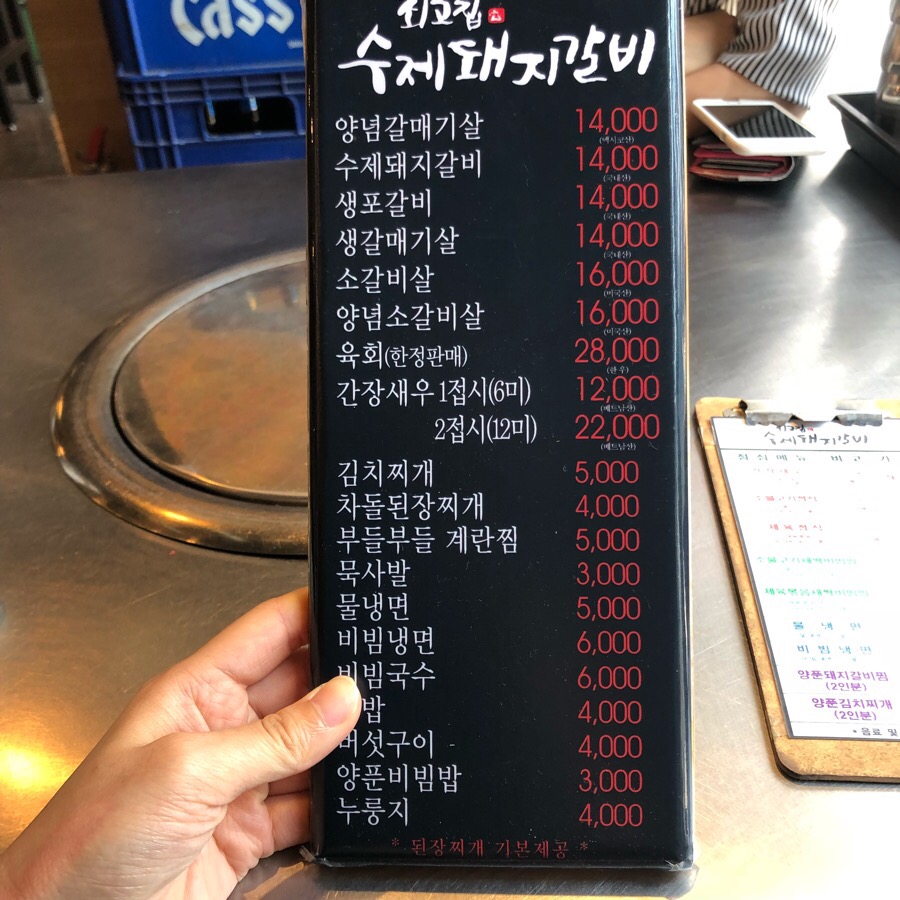 Cass
최고집
수제돼지갈비
양념갈매기살 14,000
(멕시코산)
수제돼지갈비 14,000
(국내산)
생포갈비 14,000
(국내산)
생갈매기살 14,000
(국내산)
소갈비살 16,000
(미국산)
양념소갈비살 16,000
(미국산)
육회(한정판매) 28,000
(한우)
간장새우 1접시(6미) 12,000
(베트남산)
2접시(12미) 22,000
(베트남산)
김치찌개 5,000
차돌된장찌개 4,000
부들부들 계란찜 5,000
묵사발 3,000
물냉면 5,000
비빔냉면 6,000
비빔국수 6,000
밥 4,000
버섯구이 4,000
양푼비빔밥 3,000
누룽지 4,000
* 된장찌개 기본제공 *
수제돼지갈비
점심메뉴
물냉면
비빔냉면
양푼돼지갈비찜
(2인분)
양푼김치찌개
(2인분)
* 음료 및